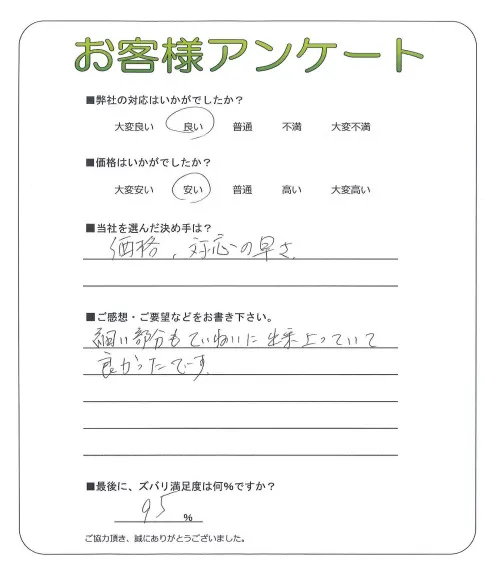 お客様アンケート
■弊社の対応はいかがでしたか？
大変良い 良い 普通 不満 大変不満
■価格はいかがでしたか？
大変安い 安い 普通 高い 大変高い
■当社を選んだ決め手は？
価格、対応の早さ
■ご感想・ご要望などをお書き下さい。
細い部分もていねいに出来上っていて
良かったです。
■最後に、ズバリ満足度は何%ですか？
95 %
ご協力頂き、誠にありがとうございました。